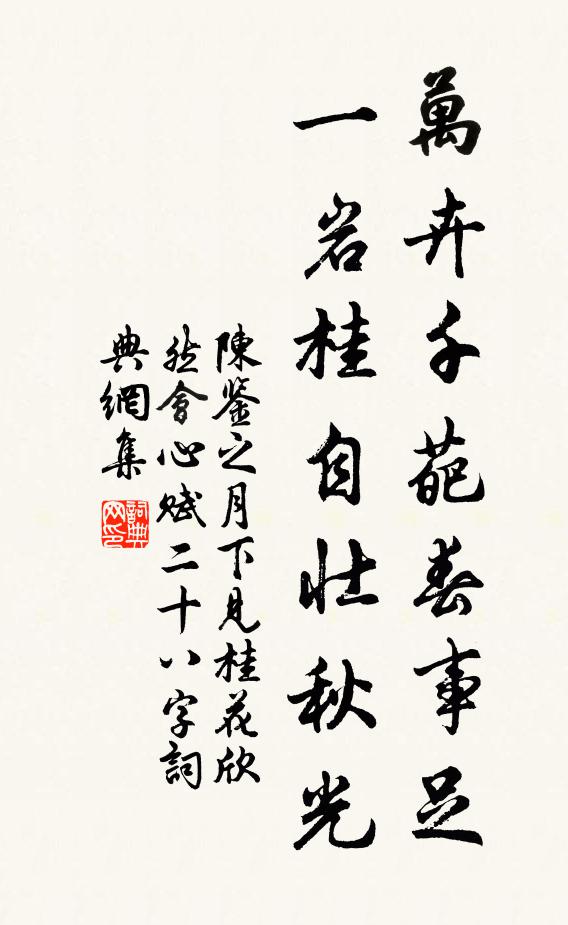 萬卉千葩春事足
一岩桂自壯秋光
陳鑒之月下見桂花欣
然會心賦二十八字詞
典網集
詞典
网印